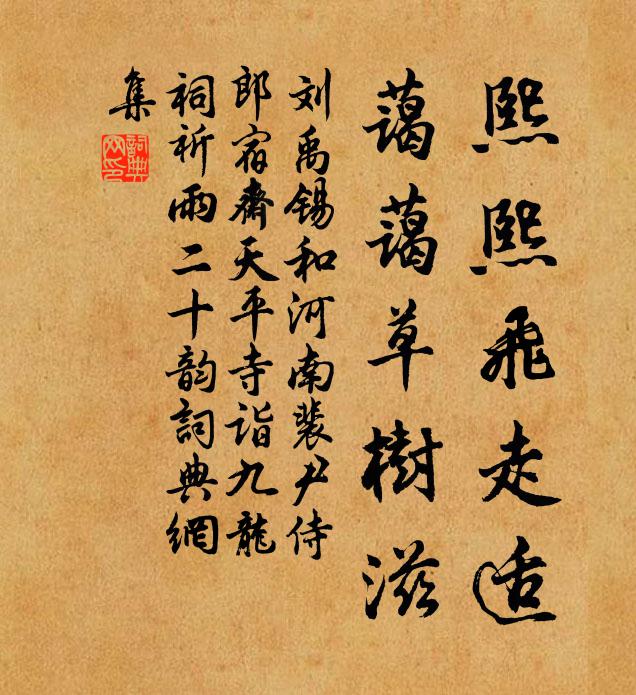 熙熙飛走适
藹藹草樹滋
刘禹锡和河南裴尹侍
郎宿齋天平寺诣九龍
祠祈雨二十韵詞典網
集
詞典网印